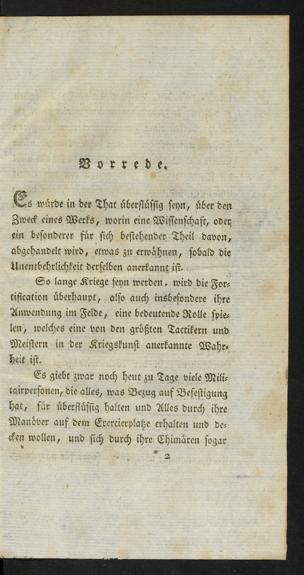 Vorrede.
Es würde in der That überflüssig seyn, über den
Zweck eines Werks, worin eine Wissenschaft, oder
ein besonderer für sich bestehender Theil davon,
abgehandelt wird, etwas zu erwähnen, sobald die
Unentbehrlichkeit derselben anerkannt ist.
So lange Kriege seyn werden, wird die For-
tification überhaupt, also auch insbesondere ihre
Anwendung im Felde, eine bedeutende Rolle spie-
len, welches eine von den größten Tactikern und
Meistern in der Kriegskunst anerkannte Wahr-
heit ist.
Es giebt zwar noch heut zu Tage viele Mili-
tairpersonen, die alles, was Bezug auf Befestigung
hat, für überflüssig halten und Alles durch ihre
Manöver auf dem Exercierplatze erhalten und de-
cken wollen, und sich durch ihre Chimären sogar
* 2